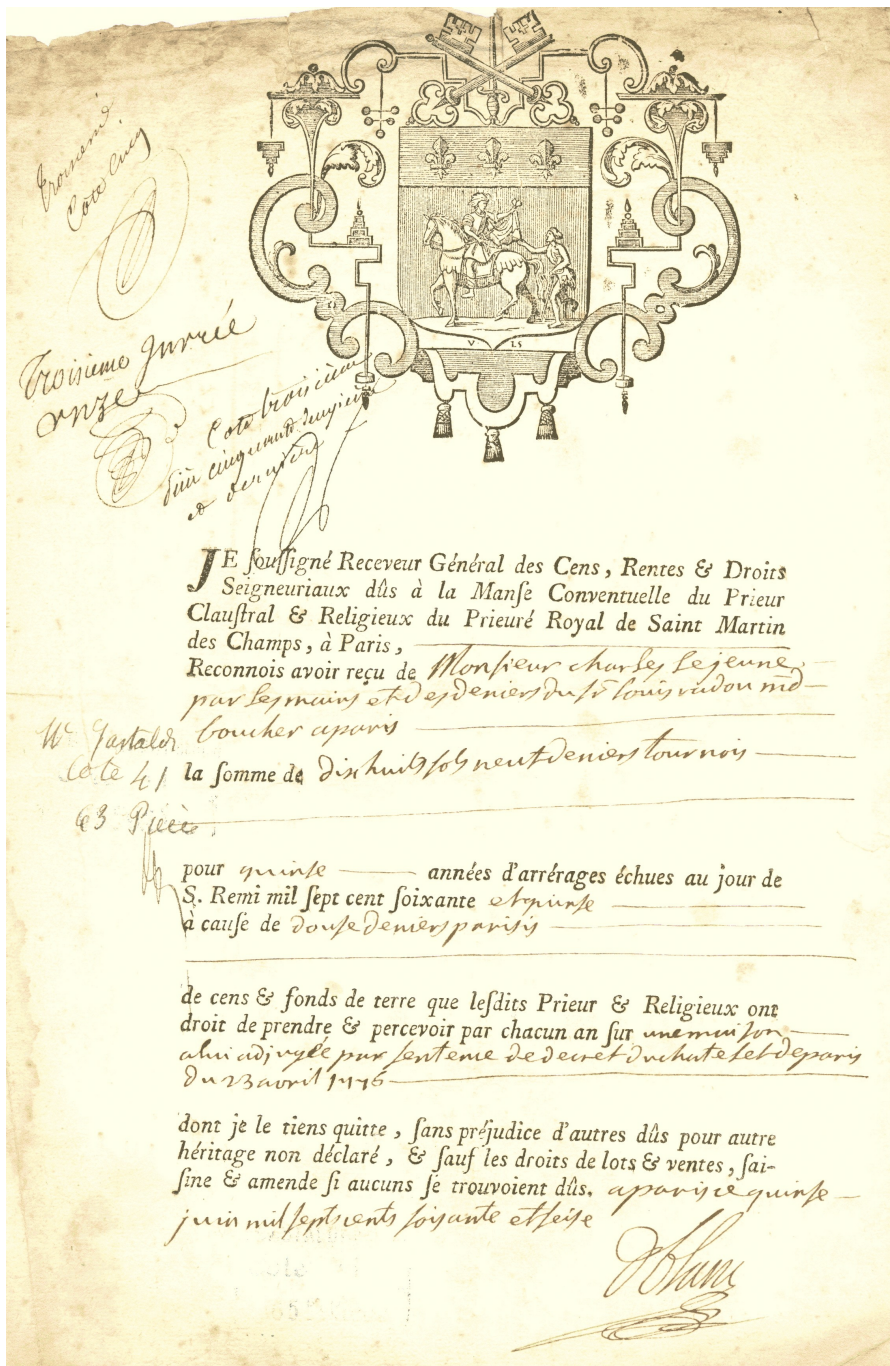 Cote
Troisieme
onze
Cote troisieme
cinquante
et derniere
V LS
JE souſſigné Receveur Général des Cens, Rentes & Droits
Seigneuriaux dûs à la Manſe Conventuelle du Prieur
Clauſtral & Religieux du Prieuré Royal de Saint Martin
des Champs, à Paris,
Reconnois avoir reçu de Monsieur charles Lejeune
par les mains et des deniers du Sr. Louis radou md
boucher aparis
Cote 41
la ſomme de dix huit ſols neuf deniers tournois
63 Piece
pour quinſe années d'arrérages échues au jour de
S. Remi mil ſept cent ſoixante et quinſe
à cauſe de douſe deniers parisis
de cens & fonds de terre que leſdits Prieur & Religieux ont
droit de prendre & percevoir par chacun an ſur une maiſon
a lui adjugée par ſentence de decret du chatelet de paris
du 23 avril 1776
dont je le tiens quitte, ſans préjudice d'autres dûs pour autre
héritage non déclaré, & ſauf les droits de lots & ventes, ſai-
ſine & amende ſi aucuns ſe trouvoient dûs. a paris ce quinſe
juin mil ſept cents ſoisante et ſeiſe